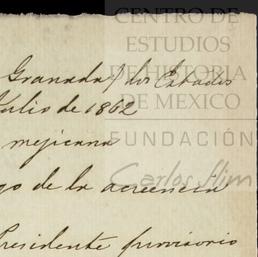 CENTRO DE
ESTUDIOS
DE HISTORIA
DE MEXICO
FUNDACIÓN
Carlos Slim
Granada / los Estados
Julio de 1862
mejicana
go de la acreencia
Presidente provisorio